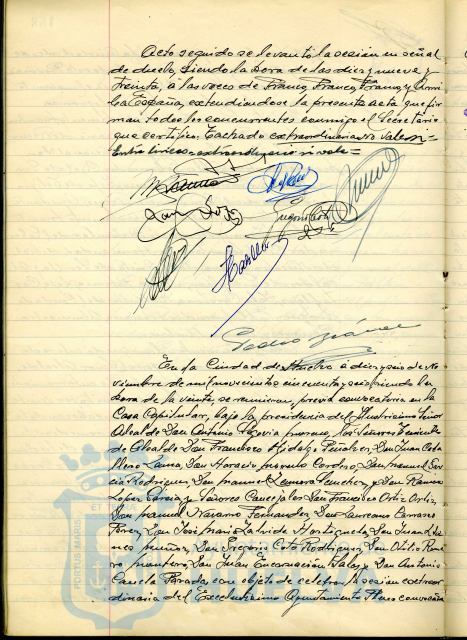 Acto seguido se levantó la sesión en señal
de duelo, siendo la hora de las diez y nueve y
treinta, a las voces de Franco, Franco, Franco y Arri-
ba España, extendiéndose la presente acta que fir-
man todos los concurrentes conmigo el Secretario
que certifico. Tachado extraordinaria no vale =
Entre líneas = extraordinario si vale =
Pedro
En la Ciudad de Huelva a diez y seis de No-
viembre de mil novecientos cincuenta y seis siendo la
hora de la veinte, se reunieron, previa convocatoria en la
Casa Capitular, bajo la presidencia del Ilustrísimo Señor
Alcalde Don Antonio Segovia Moreno, los Señores Teniente
de Alcalde Don Francisco Hidalgo Peñalver, Don Juan Ceba-
llero Lama, Don Horacio Morales Cordero, Don Manuel Gar-
cía Rodríguez, Don Manuel Zamora Sánchez y Don Ramón
López García y Señores Concejales Don Francisco Ortiz Ortiz,
Don Manuel Navarro Fernández, Don Laureano Carrasco
Pérez, Don José María Hortigueta, Don Juan
Muñoz, Don Gregorio Coto Rodríguez, Don Otilio Rome-
ro Montero, Don Juan Encarnación Salas y Don Antonio
Canela Parrado, con objeto de celebrar sesión extraor-
dinaria del Excelentísimo Ayuntamiento Pleno convocada
PORTUS MARIS
ET TERRÆ